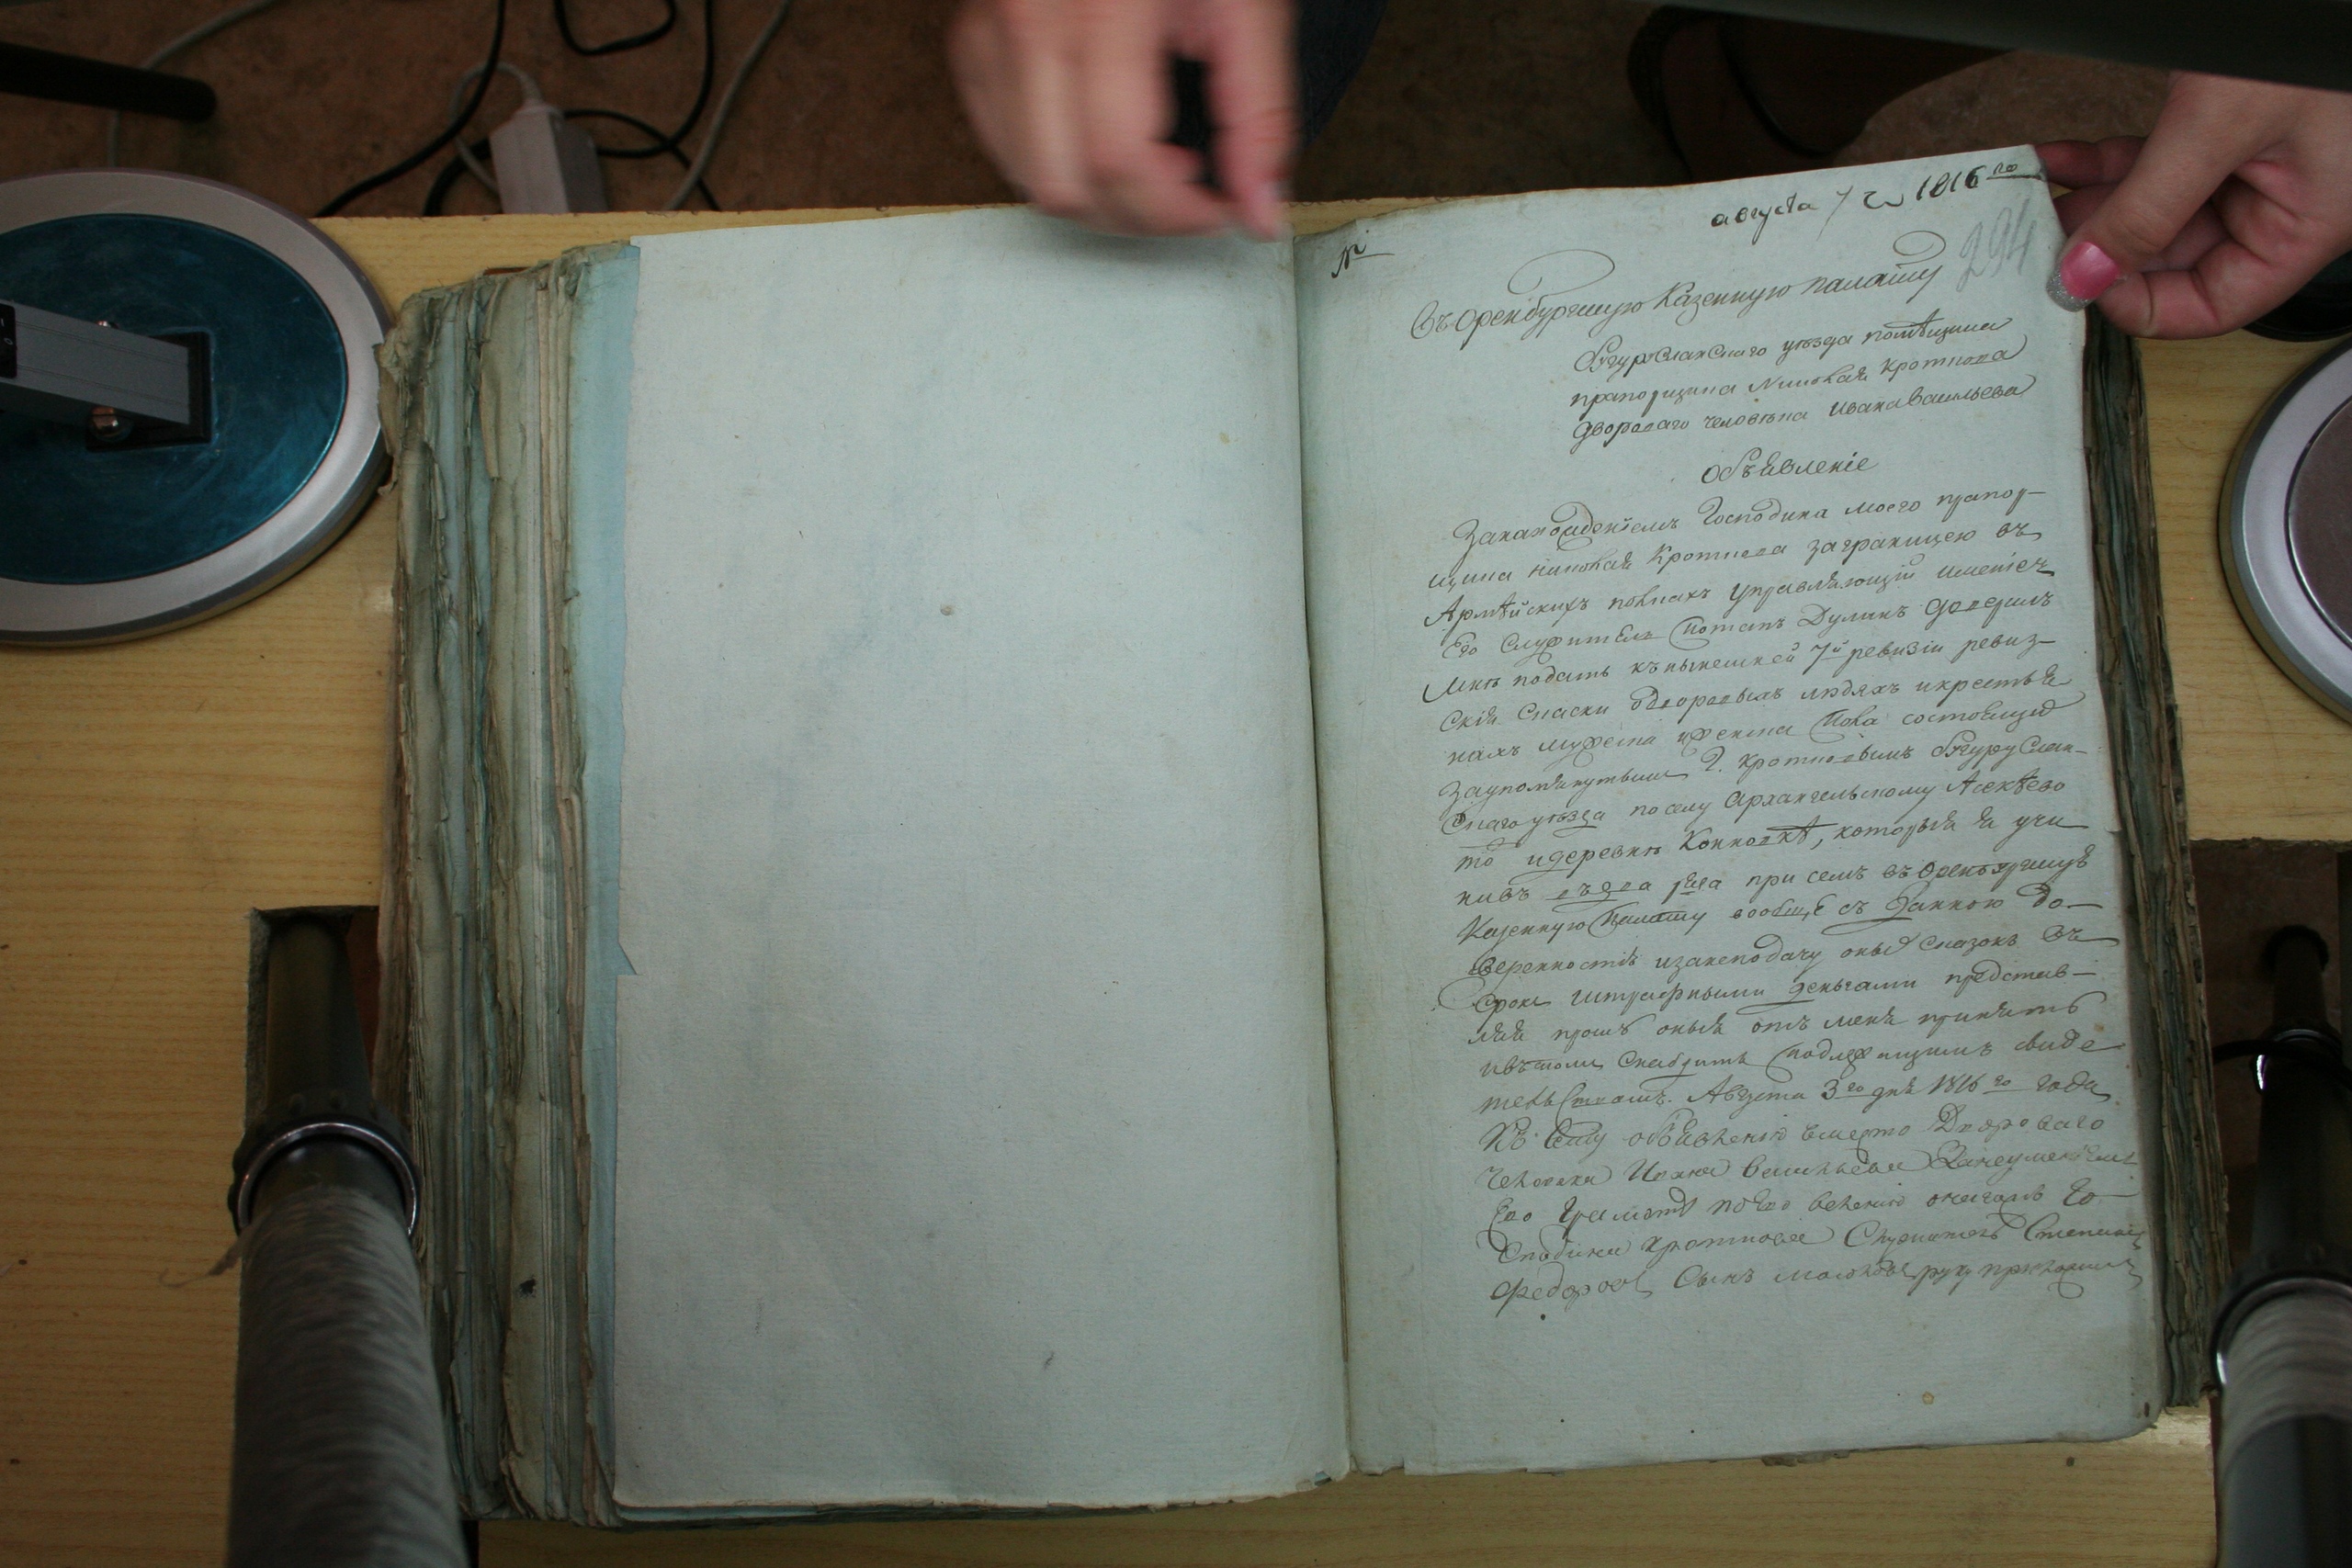 №
августа 7 ч 1816го
294
Въ оренбургскую Казенную палату
Бугурусланскаго уезда помѣщика
прапорщика Николая Кроткова
двороваго человѣка Ивана Васильева
объявленіе
За нахожденіемъ Господина моего прапор-
щика николая Кроткова заграницею въ
Армѣйскихъ полкахъ управляющій имением
Его Служитель Потапъ Дулинъ доверилъ
мнѣ подать къ нынешней 7й ревизіи ревиз-
скія Сказки о дворовыхъ людяхъ и крестья
нахъ мужеска и женска пола состоящих
за упомянутымъ Г. Кротковымъ Бугуруслан-
Скаго уезда по селу Архангельскому Аксѣево
то и деревни Конновкѣ, которыя я учи
нивъ въ два ряда при семъ въ Оренбургскую
Казенную Палату вообще съ Данною до-
веренностию и за неподачу оных сказокъ въ
Срокъ штрафными деньгами представ-
ляя прошу оныя отъ меня принять
и въ томъ Снабдить подлежащимъ свиде
тельством. Августа 3го дня 1816го года
Къ Сему объявлению вместо Двороваго
Человека Ивана Васильева За неумениемъ
Ево Грамоте по Ево велению онагожъ Го-
сподина Кроткова Служитель Степан
Федоров Сынъ руку приложилъ